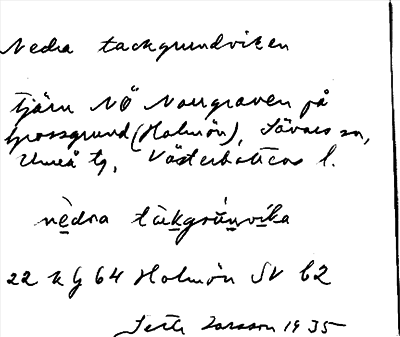 Nedra tackgrundviken
tjärn NÖ Norrgraven på
Grossgrund (Holmön), Sävars sn,
Umeå tg, Västerbottens l.
nèdra tàkgrúnvika
22 k g 64 Holmön SV b2
Larsson 1935